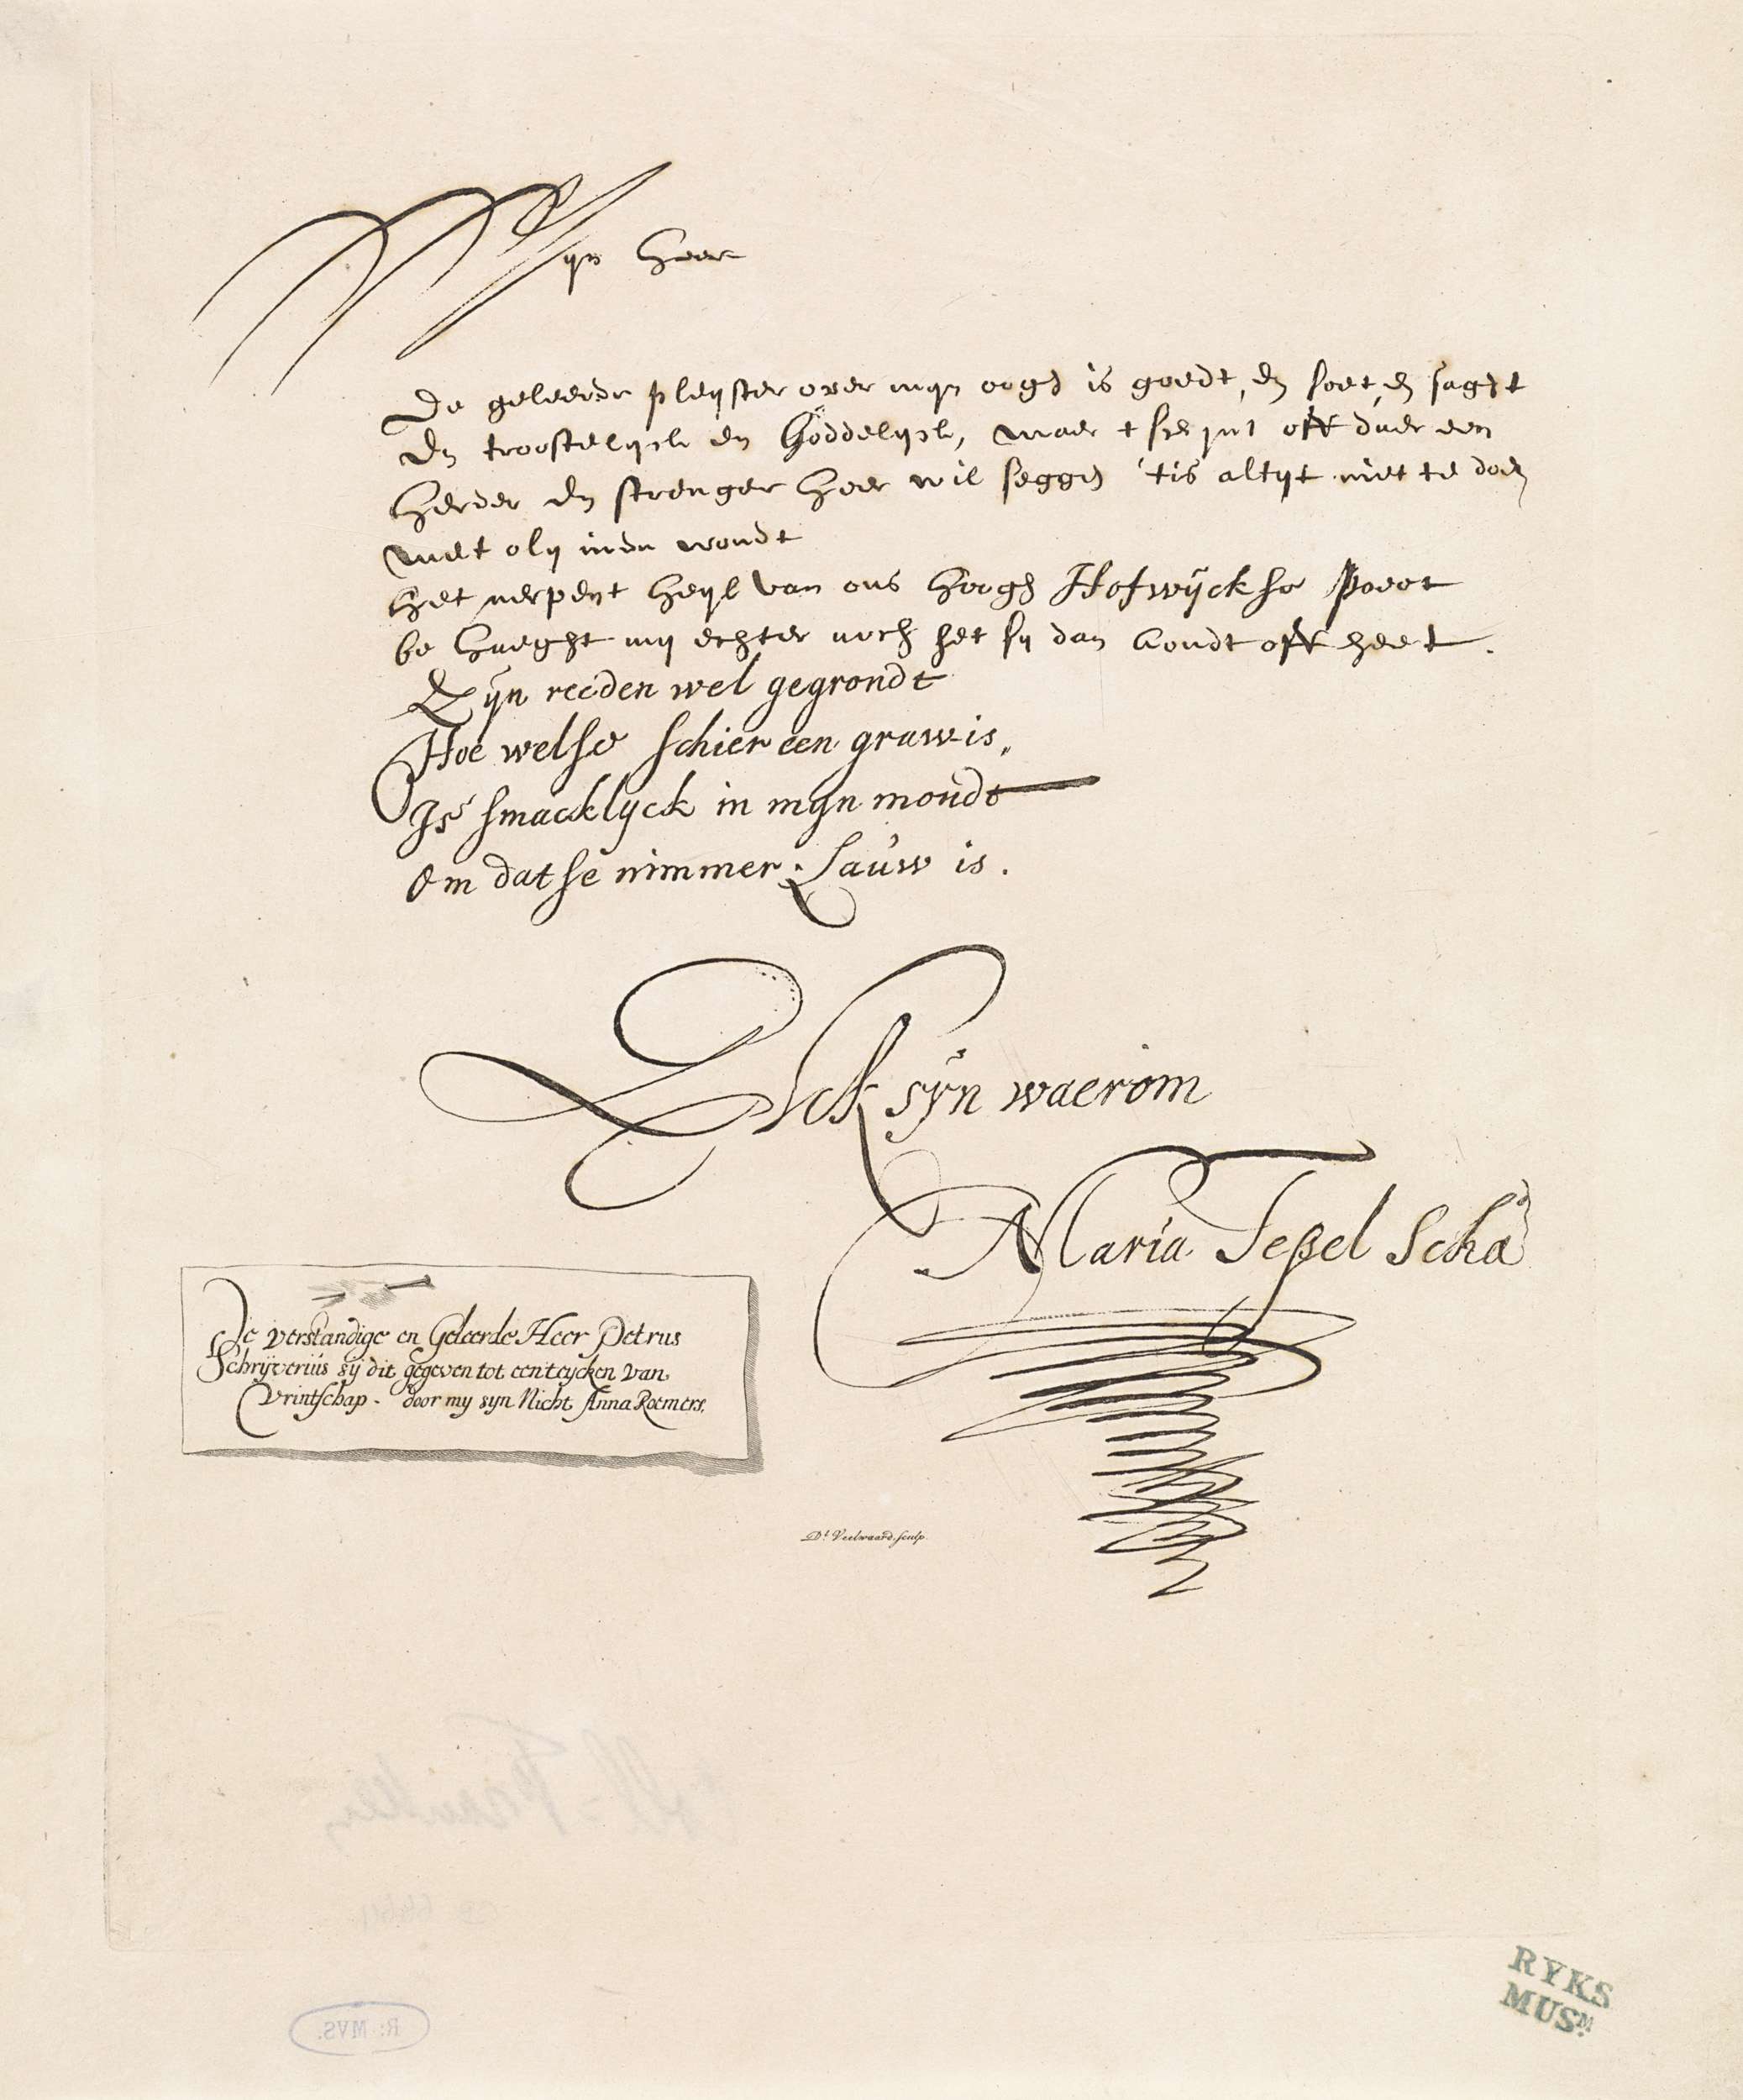 Mijn heer
De geleerde pleyster over mijn oogh is goedt, en soet, en saght
En troostelyck en Goddelyck, maer t schynt off daer een
herder en strenger heer wil seggen 'tis altyt niet te doen
met oly inde wondt
het heyl van ons hoogh Hofwÿckse Poeet
be haeght my echter noch het sy dan koudt off heet.
Zÿn reeden wel gegrondt
Hoe welse schier een grauw is,
Is smacklyck in mÿn mondt
Om datse nimmer Lauw is.
Ick sÿn waerom
Maria Teßel Scha
De verstandige en Geleerde Heer Petrus
Schrÿverius sÿ dit gegeven tot een teycken van
Vrintschap. door my syn Nicht Anna Roemers.
Dk. Veelwaard, sculp.
RYKS
MUSM.
R: MVS.